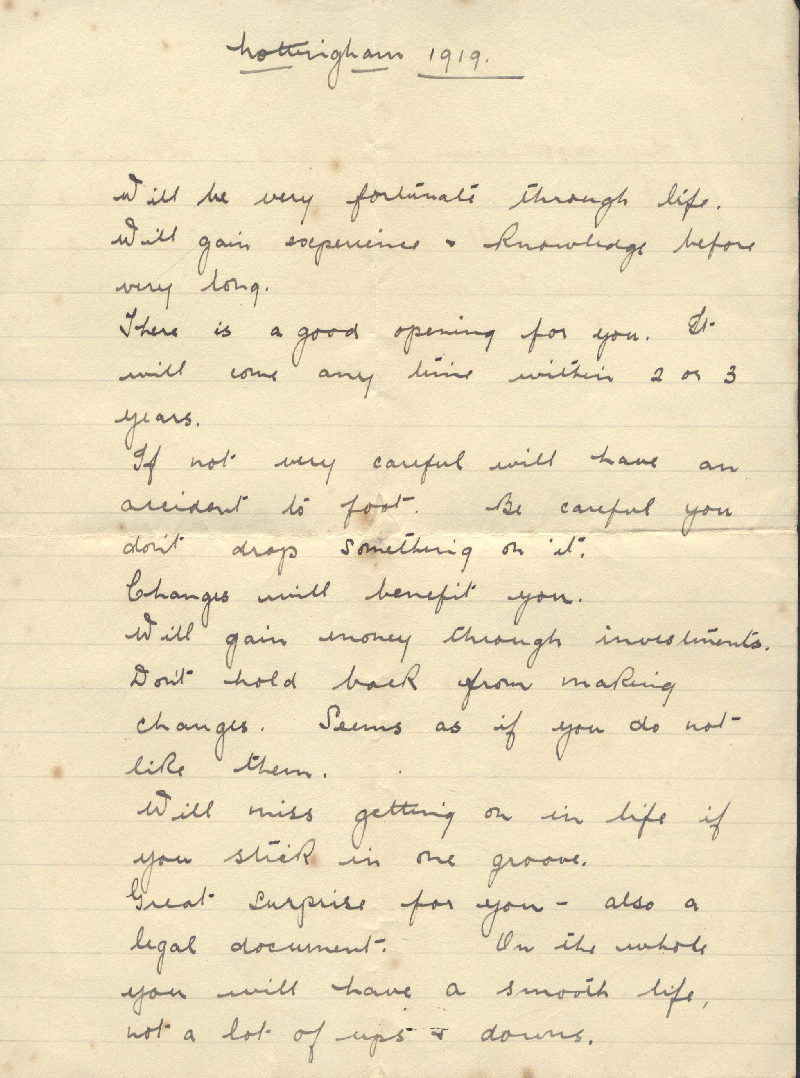 Nottingham 1919.
Will be very fortunate through life.
Will gain experience & knowledge before
very long.
There is a good opening for you. It
will come any time within 2 or 3
years.
If not very careful will have an
accident to foot. Be careful you
don't drop something on it.
Changes will benefit you.
Will gain money through investments.
Don't hold back from making
changes. Seems as if you do not
like them.
Will miss getting on in life if
you stick in one groove.
Great surprise for you - also a
legal document. On the whole
you will have a smooth life,
not a lot of ups & downs.